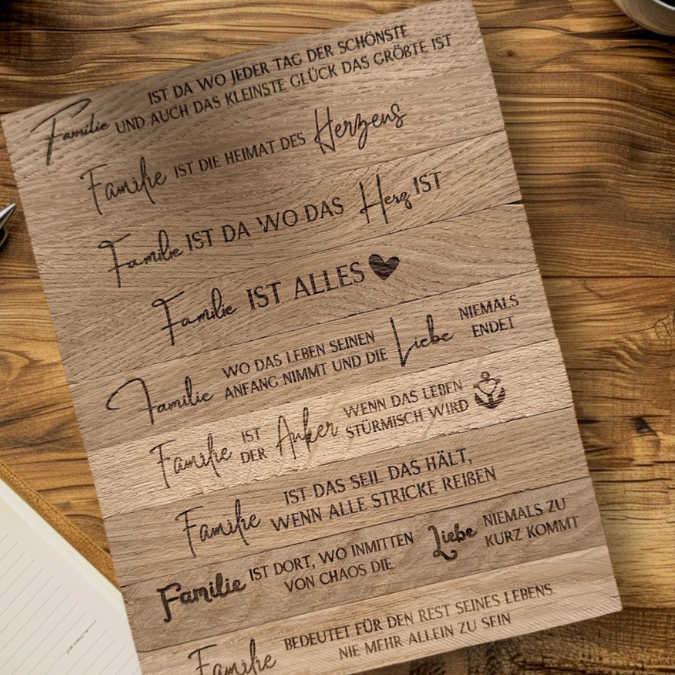 IST DA WO JEDER TAG DER SCHÖNSTE
Familie UND AUCH DAS KLEINSTE GLÜCK DAS GRÖßTE IST
Familie IST DIE HEIMAT DES Herzens
Familie IST DA WO DAS Herz IST
Familie IST ALLES
Familie WO DAS LEBEN SEINEN
ANFANG NIMMT UND DIE Liebe NIEMALS
ENDET
Familie IST
DER Anker WENN DAS LEBEN
STÜRMISCH WIRD
Familie IST DAS SEIL DAS HÄLT,
WENN ALLE STRICKE REIßEN
Familie IST DORT, WO INMITTEN
VON CHAOS DIE Liebe NIEMALS ZU
KURZ KOMMT
Familie BEDEUTET FÜR DEN REST SEINES LEBENS
NIE MEHR ALLEIN ZU SEIN